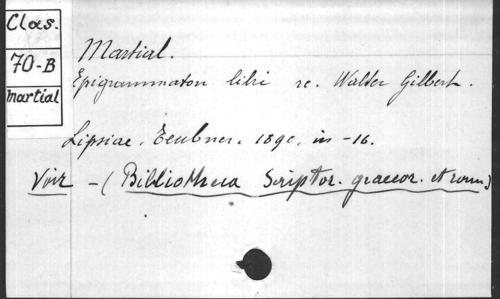 Clas.
70-B
Martial
Martial.
Epigrammaton libri re. Walter Gilbert.
Lipsiae, Teubner, 1890, in -16.
Voir - (Bibliotheca Scriptor. graecor. et rom.)